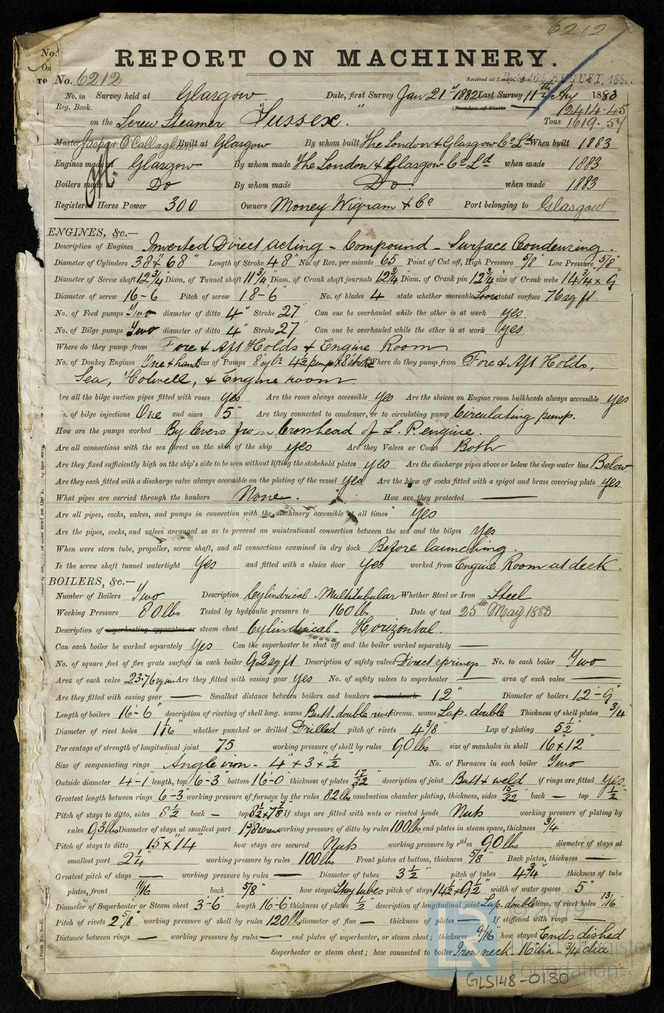 6212
REPORT ON MACHINERY.
No. 6212
No. in Survey held at Glasgow Date, first Survey Jan 21st 1882 Last Survey 11th Aug 1883
Reg. Book. 1241 4.45
on the Screw Steamer "Sussex" Tons 1619.57
Master Jasper O'Callaghan Built at Glasgow By whom built The London & Glasgow Co Ld When built 1883
Engines made at Glasgow By whom made The London & Glasgow Co Ld when made 1883
Boilers made Do By whom made Do when made 1883
Registered Horse Power 300 Owners Money Wigram & Co Port belonging to Glasgow
ENGINES, &c.—
Description of Engines Inverted Direct acting - Compound - Surface Condensing.
Diameter of Cylinders 38" & 68" Length of Stroke 48" No. of Rev. per minute 65 Point of Cut off, High Pressure 5/8 Low Pressure 5/8
Diameter of Screw shaft 12 3/4 Diam. of Tunnel shaft 11 3/4 Diam. of Crank shaft journals 12 3/4 Diam. of Crank pin 12 3/4 size of Crank webs 14 3/4 x 9
Diameter of screw 16-6 Pitch of screw 18-6" No. of blades 4 state whether moveable Loose total surface 76 sq ft
No. of Feed pumps Two diameter of ditto 4" Stroke 27 Can one be overhauled while the other is at work yes
No. of Bilge pumps Two diameter of ditto 4" Stroke 27 Can one be overhauled while the other is at work yes
Where do they pump from Fore & Aft Holds & Engine Room
No. of Donkey Engines One & hand Size of Pumps Where do they pump from Fore & Aft Holds,
Sea, Hotwell, & Engine room
Are all the bilge suction pipes fitted with roses yes Are the roses always accessible yes Are the sluices on Engine room bulkheads always accessible yes
No. of bilge injections One and sizes 5" Are they connected to condenser, or to circulating pump Circulating pump.
How are the pumps worked By levers from Crosshead of L.P. engine.
Are all connections with the sea direct on the skin of the ship yes Are they Valves or Cocks Both
Are they fixed sufficiently high on the ship's side to be seen without lifting the stokehold plates yes Are the discharge pipes above or below the deep water line Below
Are they each fitted with a discharge valve always accessible on the plating of the vessel yes Are the blow off cocks fitted with a spigot and brass covering plate yes
What pipes are carried through the bunkers None. How are they protected —
Are all pipes, cocks, valves, and pumps in connection with the machinery accessible at all times yes
Are the pipes, cocks, and valves arranged so as to prevent an unintentional connection between the sea and the bilges Yes
When were stern tube, propeller, screw shaft, and all connections examined in dry dock Before launching.
Is the screw shaft tunnel watertight Yes and fitted with a sluice door yes worked from Engine Room at deck.
BOILERS, &c.—
Number of Boilers Two Description Cylindrical. Multitubular Whether Steel or Iron Steel
Working Pressure 80 lbs Tested by hydraulic pressure to 160 lbs Date of test 25th May 1883
Description of superheating apparatus or steam chest Cylindrical - Horizontal.
Can each boiler be worked separately Yes Can the superheater be shut off and the boiler worked separately —
No. of square feet of fire grate surface in each boiler 92 sq ft Description of safety valves Direct springs No. to each boiler Two
Area of each valve 23.76 sq in Are they fitted with easing gear Yes No. of safety valves to superheater — area of each valve —
Are they fitted with easing gear — Smallest distance between boilers and bunkers or woodwork 12" Diameter of boilers 12-9"
Length of boilers 16-6" description of riveting of shell long. seams Butt. double rivt circum. seams Lap. double Thickness of shell plates 3/4"
Diameter of rivet holes 1 1/16 whether punched or drilled Drilled pitch of rivets 4 3/8 Lap of plating 5 1/2
Percentage of strength of longitudinal joint 75 working pressure of shell by rules 90 lbs size of manholes in shell 16 x 12"
Size of compensating rings Angle iron - 4 x 3 x 1/2 No. of Furnaces in each boiler Two
Outside diameter 4-1 length, top 6-3" bottom 16-0" thickness of plates 17/32 description of joint Butt & weld if rings are fitted yes
Greatest length between rings 6-3 working pressure of furnace by the rules 82 lbs combustion chamber plating, thickness, sides 15/32 back — top 1/2
Pitch of stays to ditto, sides 8 1/2 back — top If stays are fitted with nuts or riveted heads Nuts working pressure of plating by
rules 93 lbs Diameter of stays at smallest part working pressure of ditto by rules 100 lbs end plates in steam space, thickness 3/4
Pitch of stays to ditto 15 x 14" how stays are secured Nuts working pressure by rules 90 lbs diameter of stays at
smallest part 2 1/4 working pressure by rules 100 lbs Front plates at bottom, thickness 5/8 Back plates, thickness —
Greatest pitch of stays — working pressure by rules — Diameter of tubes 3 1/2 pitch of tubes 4 3/4 thickness of tube
plates, front 11/16 back 5/8" how stayed Stay tubes pitch of stays 14 1/2 x 9 1/2 width of water spaces 5"
Diameter of Superheater or Steam chest 3-6 length 16-6 thickness of plates 1/2 description of longitudinal joint Lap. double diam. of rivet holes 13/16
Pitch of rivets 2 7/8 working pressure of shell by rules 120 lbs diameter of flue — thickness of plates — If stiffened with rings —
Distance between rings — working pressure by rules — end plates of superheater, or steam chest; thickness 9/16 how stayed Ends dished
Superheater or steam chest; how connected to boiler Iron neck - 16 dia - 3/4 dia
GLS148-0180